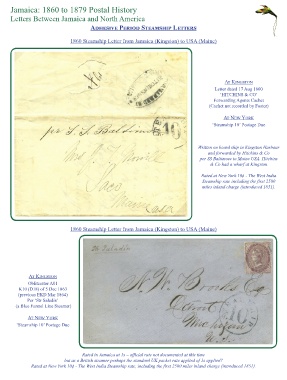 Jamaica: 1860 to 1879 Postal History
Letters Between Jamaica and North America
ADHESIVE PERIOD STEAMSHIP LETTERS
1860 Steamship Letter from Jamaica (Kingston) to USA (Maine)
per S. S. Baltimore
Saco
Maine
10
AT KINGSTON
Letter dated 17 Aug 1860
'HITCHINS & CO'
Forwarding Agents Cachet
(Cachet not recorded by Foster)
AT NEW YORK
'Steamship 10' Postage Due
Written on board ship in Kingston Harbour
and forwarded by Hitchins & Co
per SS Baltimore to Maine USA. Hitchins
& Co had a wharf at Kingston.
Rated at New York 10¢ - The West India
Steamship rate including the first 2500
miles inland charge (introduced 1851).
1860 Steamship Letter from Jamaica (Kingston) to USA (Maine)
AT KINGSTON
Obliterator A01
of 5 Dec 1863
(previous ERD Mar 1864)
Per 'Str Saladin'
(a Blue Funnel Line Steamer)
AT NEW YORK
'Steamship 10' Postage Due
Str Saladin
10
Rated in Jamaica at 1s – official rate not documented at this time
but as a British steamer perhaps the standard UK packet rate applied of 1s applied?
Rated at New York 10¢ - The West India Steamship rate, including the first 2500 miles inland charge (introduced 1851)